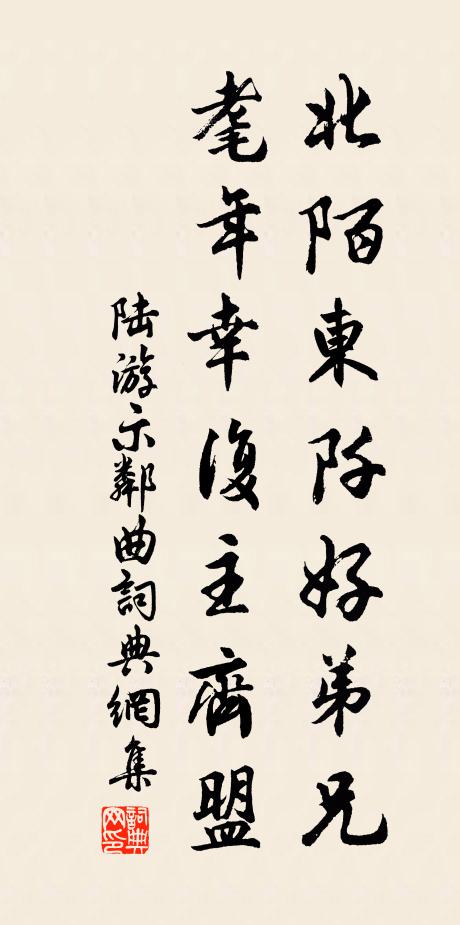 北陌東阡好弟兄
耄年幸復主齊盟
陆游示鄰曲詞典網集
詞典網印